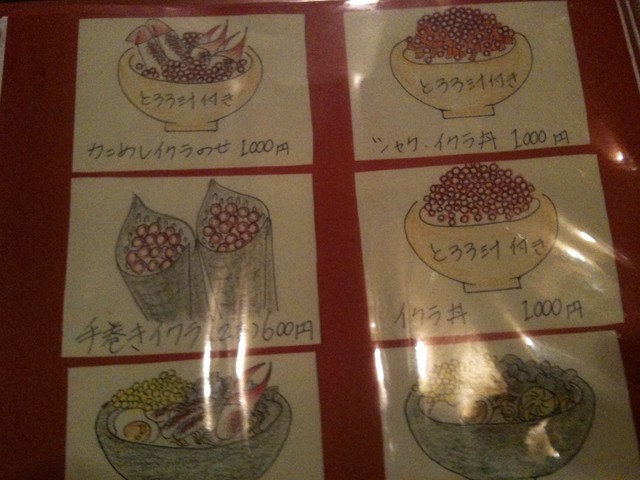 とろろ汁付き
カニめしイクラのせ 1000円
とろろ汁付き
シャケ・イクラ丼 1000円
手巻きイクラ 600円
とろろ汁付き
イクラ丼 1000円